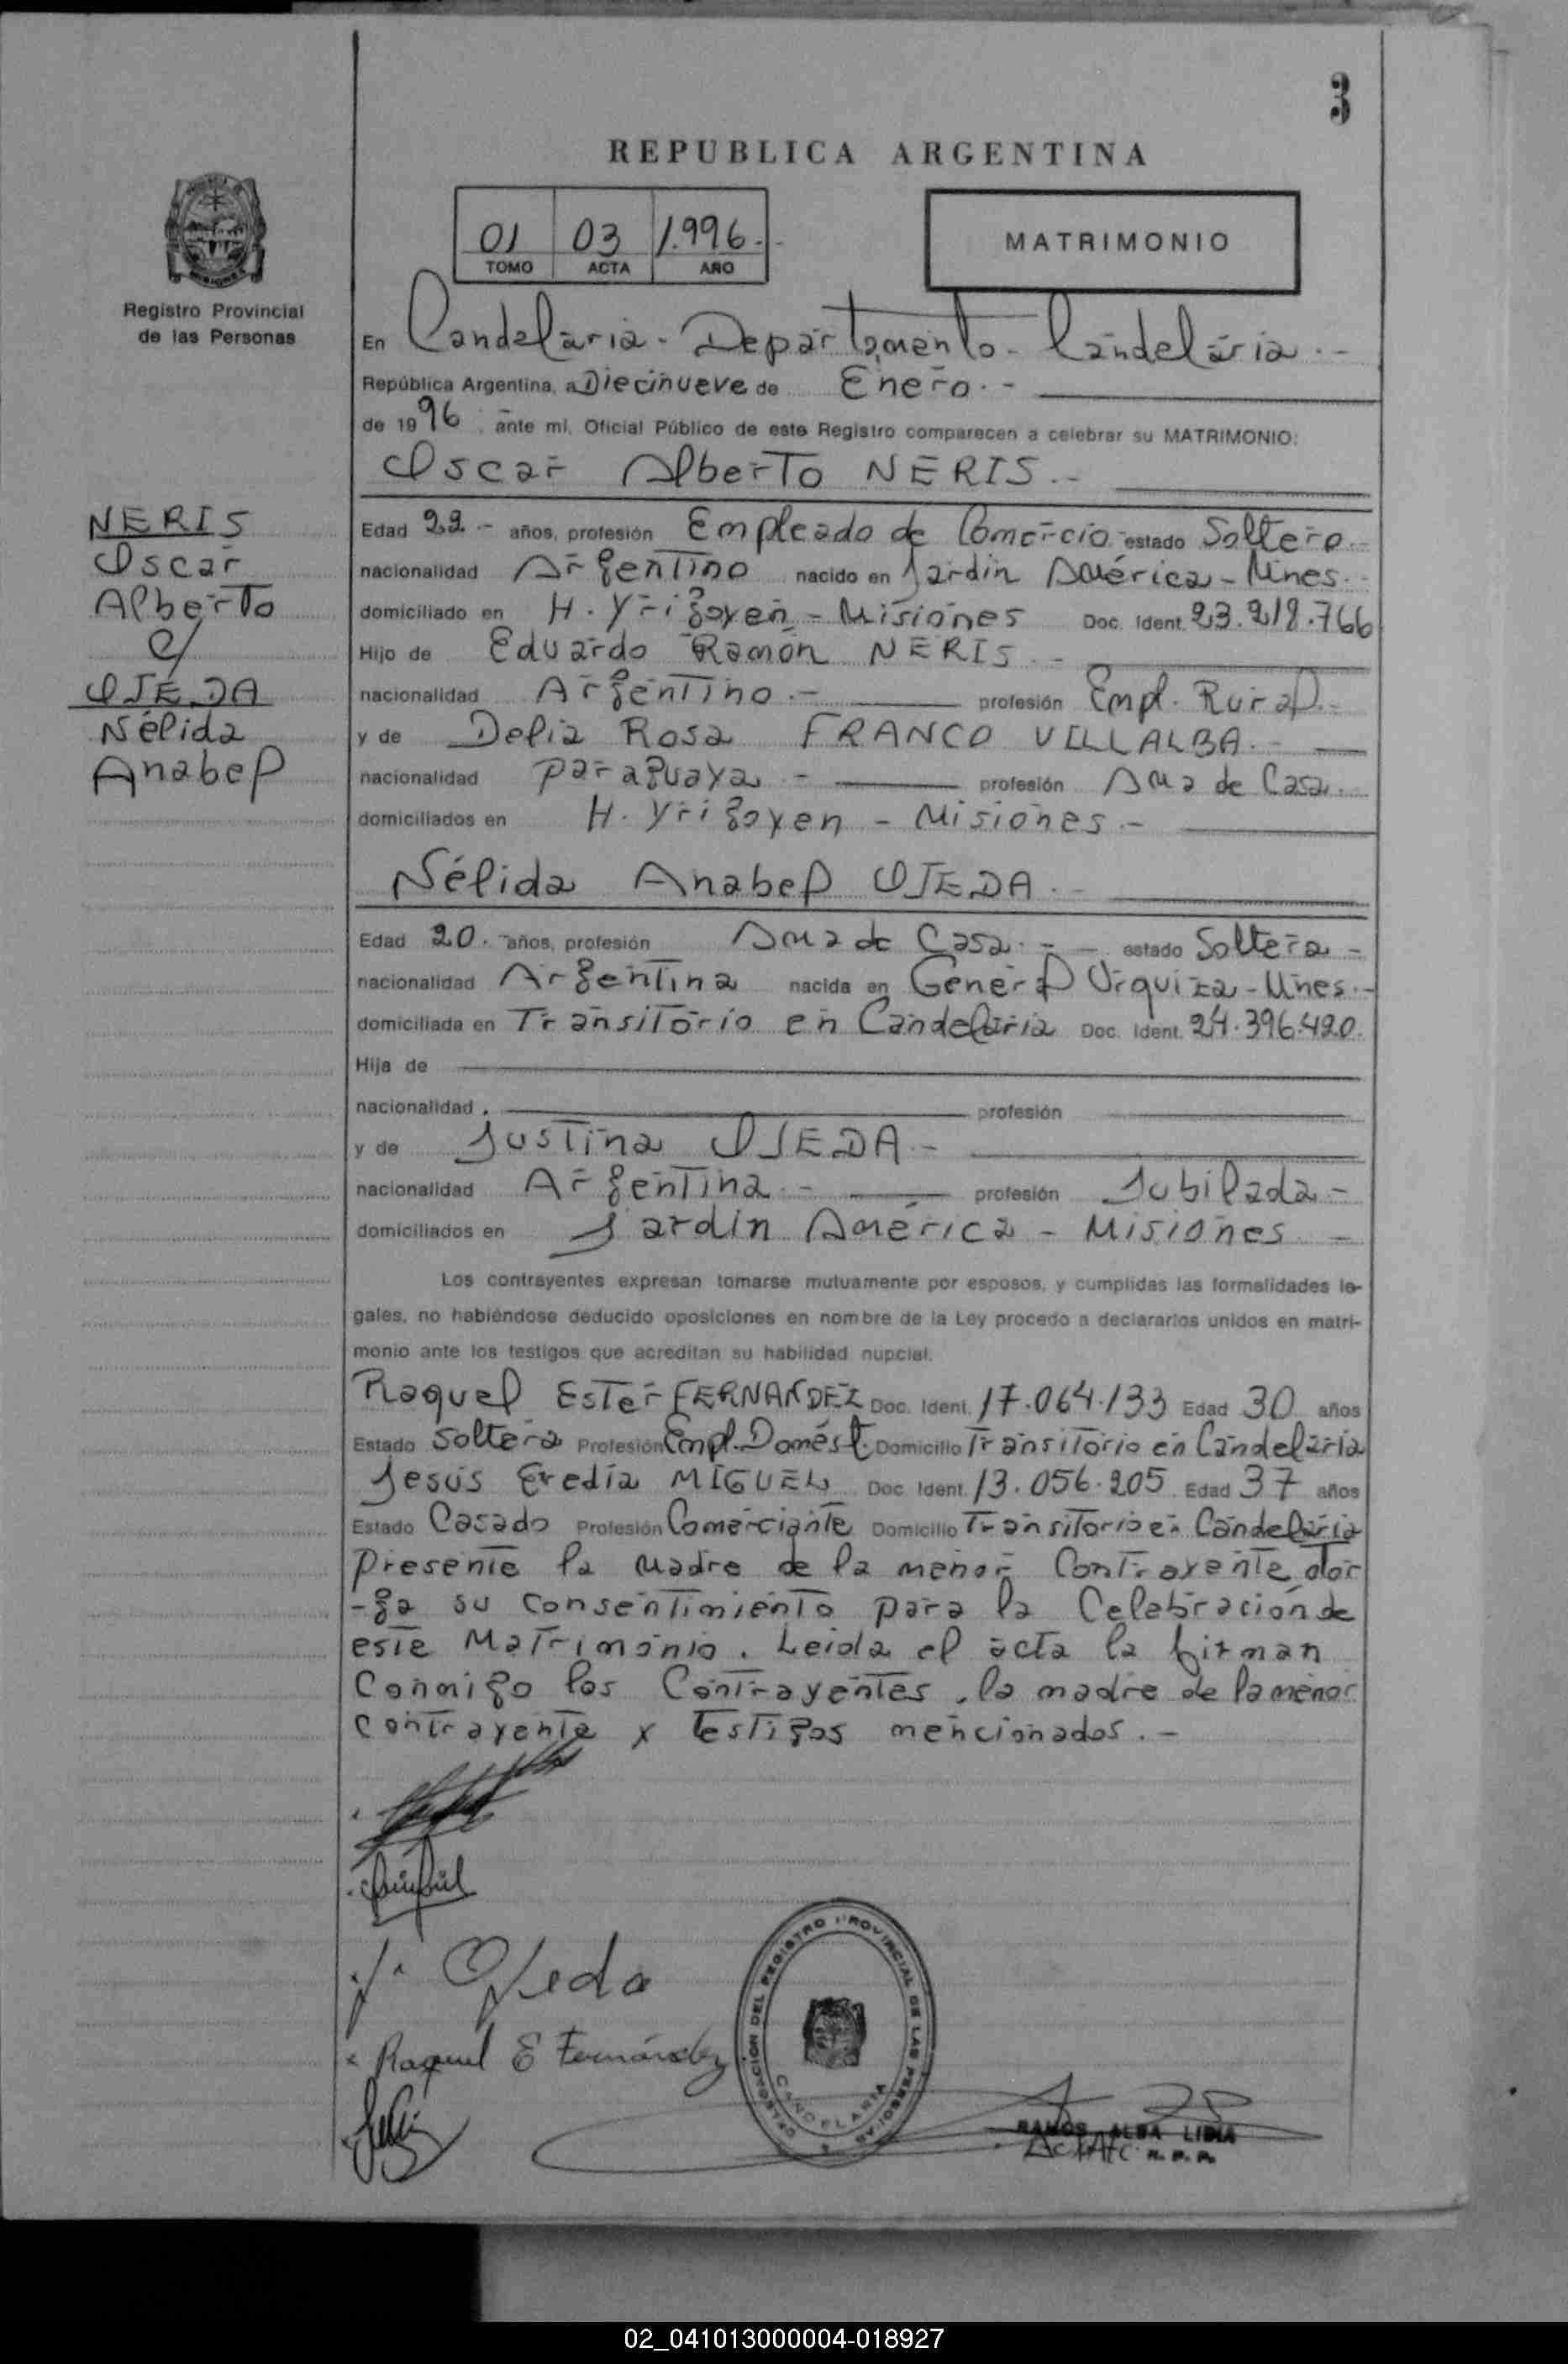 3
REPUBLICA ARGENTINA
01 03 1.996.-
TOMO ACTA AÑO
MATRIMONIO
Registro Provincial
de las Personas
En Candelaria - Departamento - Candelaria.-
República Argentina, a Diecinueve de Enero.-
de 1996, ante mí, Oficial Público de este Registro comparecen a celebrar su MATRIMONIO:
Oscar Alberto NERIS.-
NERIS
Oscar
Alberto
c/
OJEDA
Nélida
Anabel
Edad 22.- años, profesión Empleado de Comercio.- estado Soltero.-
nacionalidad Argentino nacido en Jardín América - Mnes.-
domiciliado en H. Yrigoyen - Misiones Doc. Ident. 23.218.766
Hijo de Eduardo Ramón NERIS.-
nacionalidad Argentino.- profesión Empl. Rural.-
y de Delia Rosa FRANCO VILLALBA.-
nacionalidad paraguaya - profesión Ama de Casa.
domiciliados en H. Yrigoyen - Misiones.-
Nélida Anabel OJEDA.-
Edad 20.- años, profesión Ama de Casa.- - estado Soltera -
nacionalidad Argentina nacida en General Urquiza - Mnes.-
domiciliada en Transitorio en Candelaria Doc. Ident. 24.396.420.
Hija de
nacionalidad profesión
y de Justina OJEDA.-
nacionalidad Argentina.- profesión Jubilada -
domiciliados en Jardín América - Misiones -
Los contrayentes expresan tomarse mutuamente por esposos, y cumplidas las formalidades le-
gales, no habiéndose deducido oposiciones en nombre de la Ley procedo a declararlos unidos en matri-
monio ante los testigos que acreditan su habilidad nupcial.
Raquel Ester FERNANDEZ Doc. Ident. 17.064.133 Edad 30 años
Estado Soltera Profesión Empl. Domést. Domicilio Transitorio en Candelaria
Jesús Eredia MIGUEL Doc. Ident. 13.056.205 Edad 37 años
Estado Casado Profesión Comerciante Domicilio Transitorio en Candelaria
Presente la madre de la menor Contrayente, otor
-ga su consentimiento para la Celebración de
este Matrimonio. Leida el acta la firman
Conmigo los Contrayentes, la madre de la menor
contrayente y testigos mencionados.-
J. Ojeda
Raquel E Fernández
DELEGACION DEL REGISTRO PROVINCIAL DE LAS PERSONAS
CANDELARIA
RAMOS ALBA LIDIA
R. P. P.
02_041013000004-018927